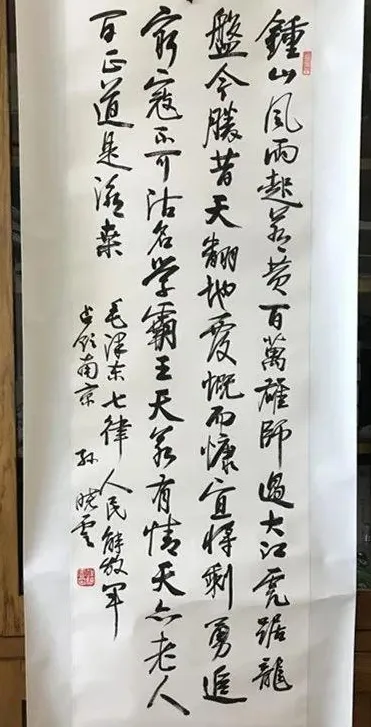 鍾山風雨起蒼黃百萬雄師過大江虎踞龍
盤今勝昔天翻地覆慨而慷宜將剩勇追
窮寇不可沽名学霸王天若有情天亦老人
間正道是滄桑
毛澤东七律 人民解放军
占領南京 孫曉雲